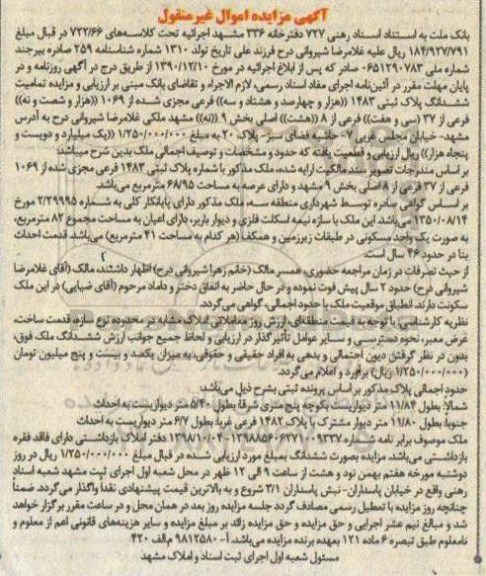 آگهی مزایده اموال غیرمنقول
بانک ملت به استناد اسناد رهنی ۷۲۷ دفترخانه ۳۳۶ مشهد اجرائیه تحت کلاسه‌های ۷۲۲/۶۶ در قبال مبلغ
۱۸۴/۹۲۷/۷۹۱ ریال علیه غلامرضا شیروانی درح فرزند علی تاریخ تولد ۱۳۱۰ شماره شناسنامه ۲۵۹ صادره بیرجند
شماره ملی ۰۶۵۱۲۹۰۷۸۳ صادر که پس از ابلاغ اجرائیه در مورخ ۱۳۹۰/۱۲/۱۰ از طریق درج در آگهی روزنامه و در
پایان مهلت مقرر در آئین‌نامه اجرای مفاد اسناد رسمی، لازم الاجراء و تقاضای بانک مبنی بر ارزیابی و مزایده تمامیت
ششدانگ پلاک ثبتی ۱۴۸۳ ((هزار و چهارصد و هشتاد و سه)) فرعی مجزی شده از ۱۰۶۹ ((هزار و شصت و نه))
فرعی از ۳۷ (سی و هفت)) فرعی از ۸ ((هشت)) اصلی بخش ۹ ((نه)) مشهد ملکی غلامرضا شیروانی درح به آدرس
مشهد- خیابان مجلسی غربی ۷- حاشیه فضای سبز- پلاک ۲۰ به مبلغ ۱/۲۵۰/۰۰۰/۰۰۰ ((یک میلیارد و دویست و
پنجاه هزار)) ریال ارزیابی و قطعیت یافته که حدود و مشخصات و توصیف اجمالی ملک بدین شرح میباشد:
بر اساس مندرجات تصویر سند مالکیت ارایه شده، ملک مذکور با شماره پلاک ثبتی ۱۴۸۳ فرعی مجزی شده از ۱۰۶۹
فرعی از ۳۷ فرعی از ۸ اصلی بخش ۹ مشهد و دارای عرصه به مساحت ۶۸/۹۵ مترمربع می‌باشد.
بر اساس گواهی صادره توسط شهرداری منطقه سه، ملک مذکور دارای پایانکار کلی به شماره ۲/۲۹۹۹۵ مورخ
۱۳۵۰/۰۸/۱۴ می‌باشد. این ملک با سازه نیمه اسکلت فلزی و دیوار باربر، دارای اعیان به مساحت مجموع ۸۲ مترمربع،
به صورت یک واحد مسکونی در طبقات زیرزمین و همکف (هر کدام به مساحت ۴۱ مترمربع) می‌باشد. قدمت احداث
بنا در حدود ۴۶ سال است.
از حیث تصرفات در زمان مراجعه حضوری، همسر مالک (خانم زهرا شیروانی درح) اظهار داشتند، مالک (آقای غلامرضا
شیروانی درح) حدود ۲ سال پیش فوت نموده و در حال حاضر به اتفاق دختر و داماد مرحوم (آقای ضیایی) در این ملک
سکونت دارند. انطباق موقعیت ملک با حدود اجمالی، گواهی می‌گردد.
نظریه کارشناسی: با توجه به قیمت منطقه‌ای، ارزش روز معاملاتی املاک مشابه در محدوده نوع سازه، قدمت ساخت،
عرض معبر، نحوه دسترسی و سایر عوامل تأثیرگذار در ارزیابی و لحاظ جمیع جوانب ارزش ششدانگ ملک فوق،
بدون در نظر گرفتن دیون احتمالی و بدهی به افراد حقیقی و حقوقی، به میزان یکصد و بیست و پنج میلیون تومان
(۱/۲۵۰/۰۰۰/۰۰۰ ریال) برآورد و اعلام می‌گردد.
حدود اجمالی پلاک مذکور بر اساس پرونده ثبتی بشرح ذیل می‌باشد:
شمالاً: بطول ۱۱/۸۴ متر دیواریست بکوچه پنج متری شرقاً: بطول ۵/۴۰ متر دیواریست به احداث
جنوباً: بطول ۱۱/۸۰ متر دیوار مشترک با پلاک ۱۴۸۲ فرعی غرباً: بطول ۶/۷ متر دیواریست به احداث
ملک موصوف برابر نامه شماره ۱۳۹۸۸۵۶۰۶۲۷۱۰۰۹۳۳۷-۱۳۹۸/۱۰/۴ دفتر املاک بازداشتی دارای فاقد فقره
بازداشتی می‌باشد. مزایده بصورت ششدانگ بمبلغ مورد ارزیابی شده در قبال مبلغ ۱/۲۵۰/۰۰۰/۰۰۰ ریال در روز
دوشنبه مورخه هفتم بهمن نود و هشت از ساعت ۹ الی ۱۲ ظهر در محل شعبه اول اجرای ثبت مشهد شعبه اسناد
رهنی واقع در خیابان پاسداران- نبش پاسداران ۳/۱ شروع و به بالاترین قیمت پیشنهادی نقداً واگذار می‌گردد. ضمناً
چنانچه روز مزایده با تعطیل رسمی مصادف گردد جلسه مزایده روز بعد در همان محل و در ساعت مقرر برگزار خواهد
شد و مبالغ نیم عشر اجرایی و حق مزایده و حق مزایده زائد بر مبلغ مزایده و سایر هزینه‌های قانونی اعم از معلوم و
نامعلوم طبق تبصره ۶ ماده ۱۲۱ بعهده برنده مزایده می‌باشد. آ- 9812580 م.الف ۴۲۰
مسئول شعبه اول اجرای ثبت اسناد و املاک مشهد